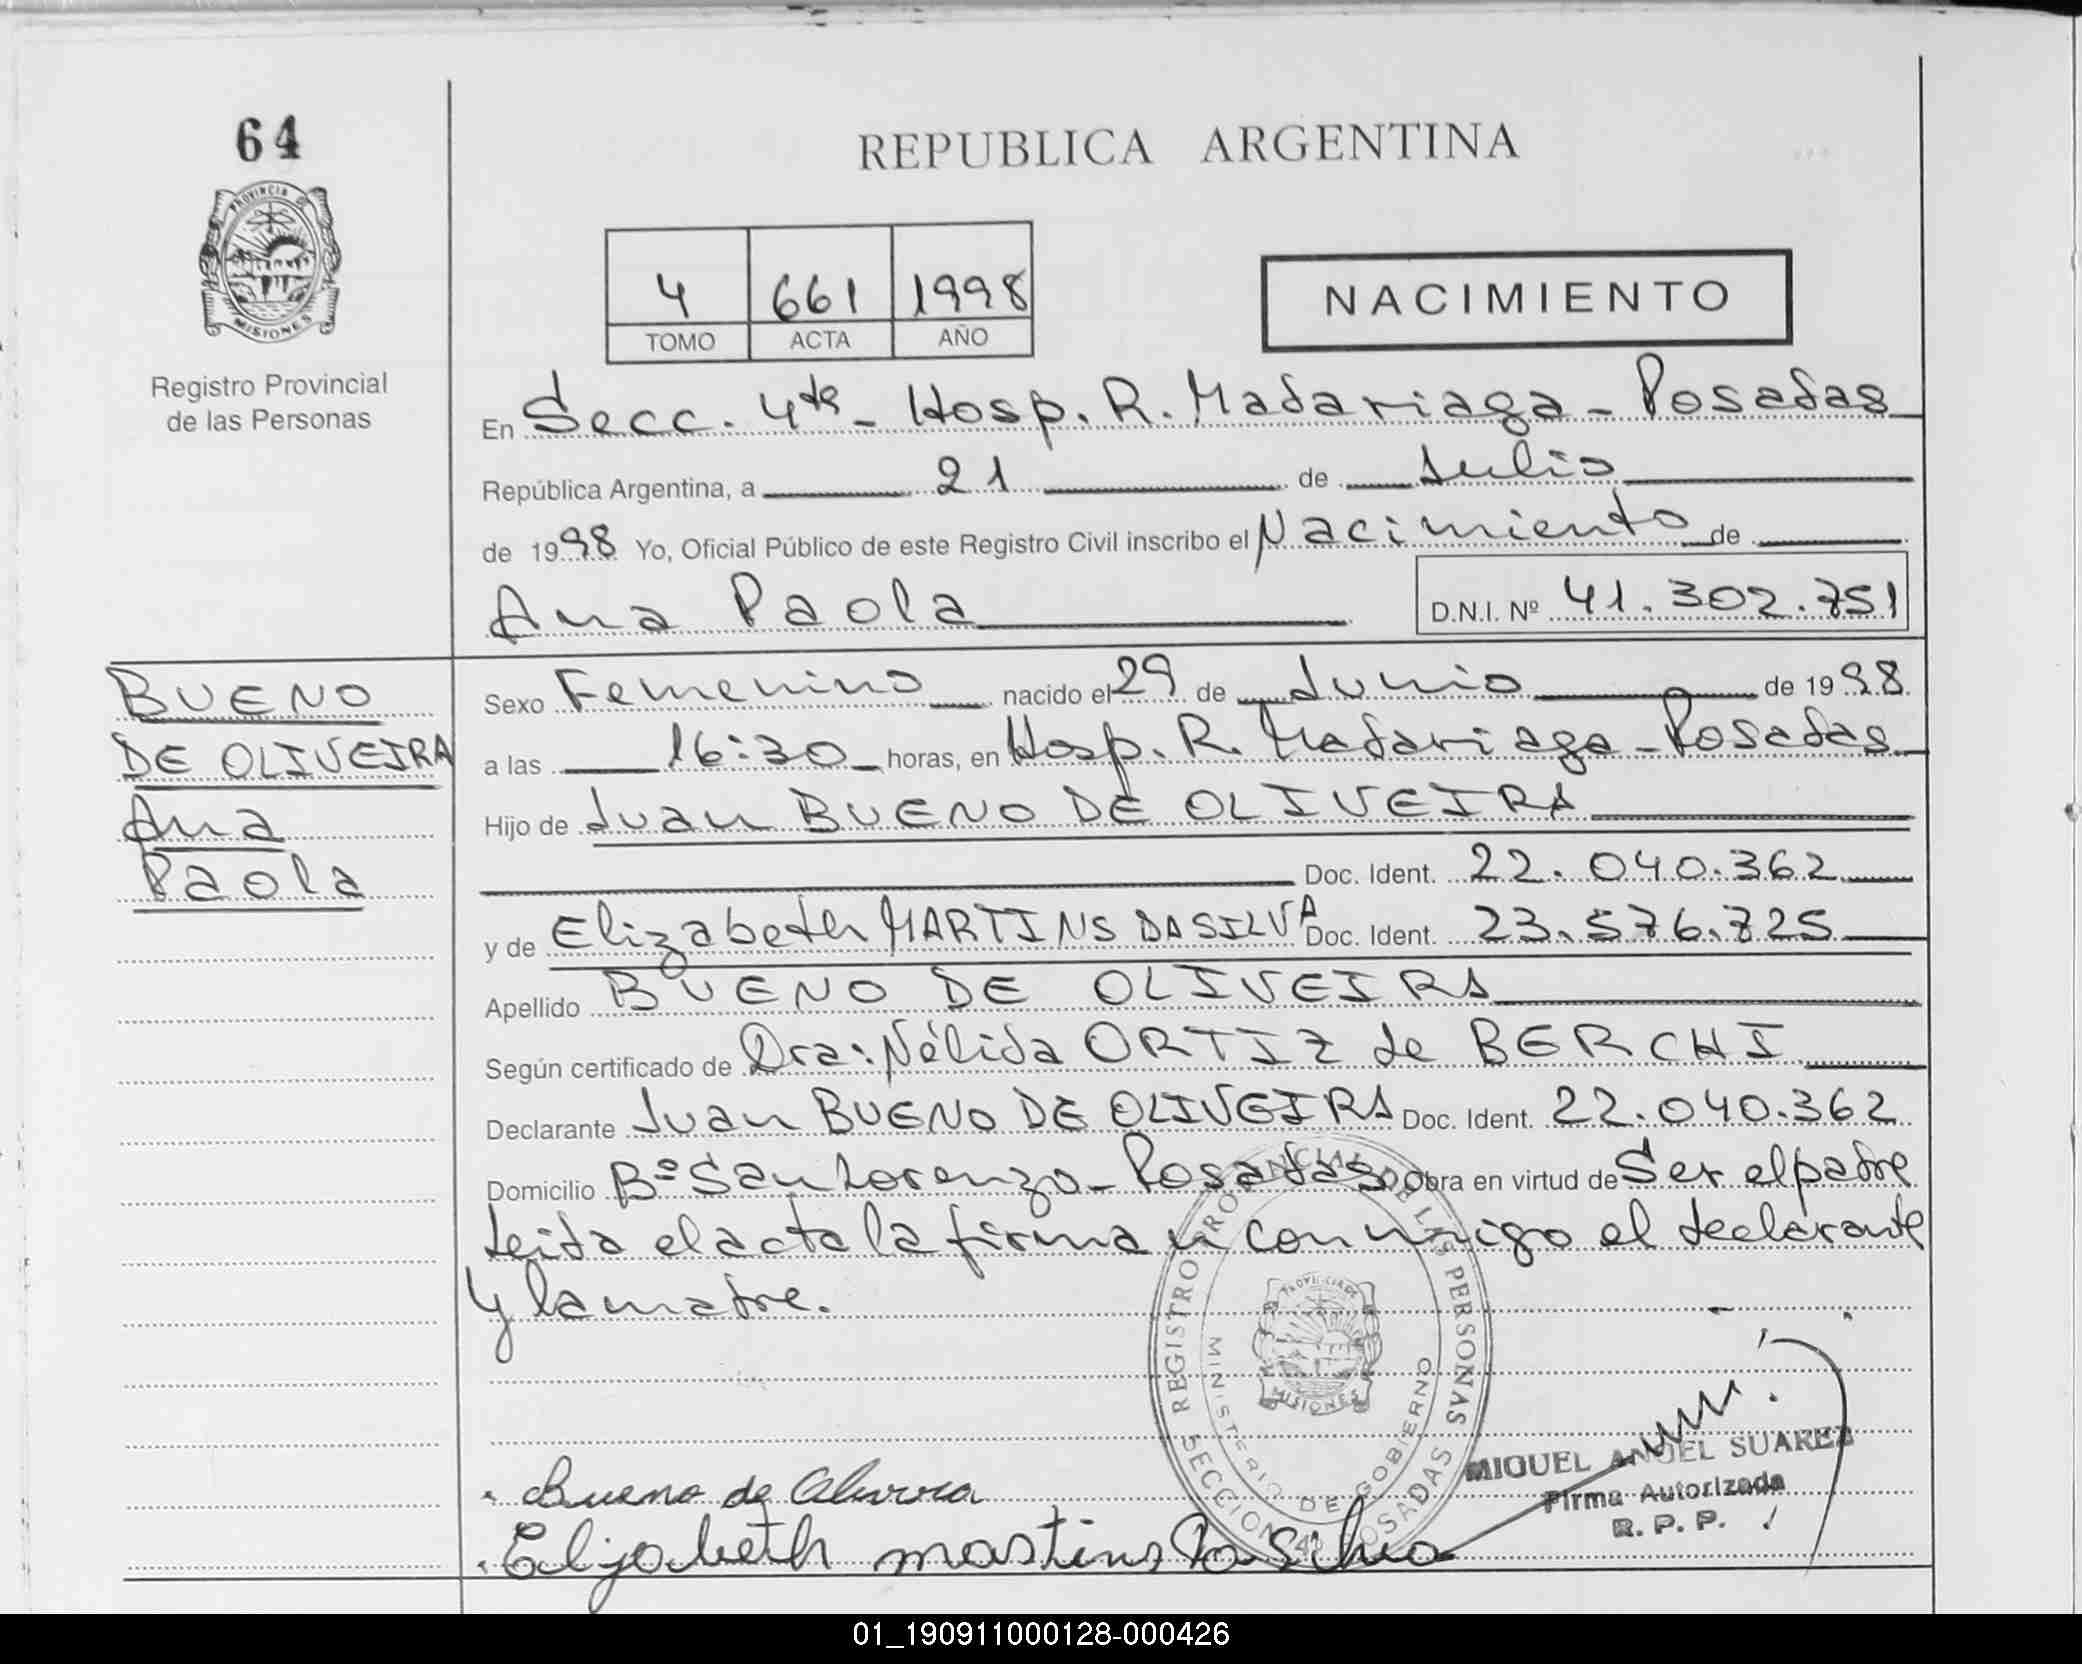 64
REPUBLICA ARGENTINA
PROVINCIA DE
MISIONES
4 661 1998
TOMO ACTA AÑO
NACIMIENTO
Registro Provincial
de las Personas
En Secc. 4ta - Hosp. R. Madariaga - Posadas
República Argentina, a 21 de Julio
de 1998 Yo, Oficial Público de este Registro Civil inscribo el Nacimiento de
Ana Paola D.N.I. Nº 41.302.751
BUENO
DE OLIVEIRA
Ana
Paola
Sexo Femenino nacido el 29 de Junio de 1998
a las 16:30 horas, en Hosp. R. Madariaga - Posadas
Hijo de Juan BUENO DE OLIVEIRA
Doc. Ident. 22.040.362
y de Elizabeth MARTINS DA SILVA Doc. Ident. 23.576.725
Apellido BUENO DE OLIVEIRA
Según certificado de Dra: Nélida ORTIZ de BERCHI
Declarante Juan BUENO DE OLIVEIRA Doc. Ident. 22.040.362
Domicilio Bº San Lorenzo - Posadas Obra en virtud de Ser el padre
Leida el acta la firman conmigo el declarante
y la madre.
REGISTRO PROVINCIAL DE LAS PERSONAS
MINISTERIO DE GOBIERNO
MISIONES
SECCION 4º POSADAS
MIGUEL ANGEL SUAREZ
Firma Autorizada
R. P. P.
Bueno de Oliveira
Elizabeth martins Da Silva
01_190911000128-000426